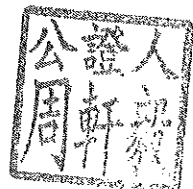 公證人
周軒